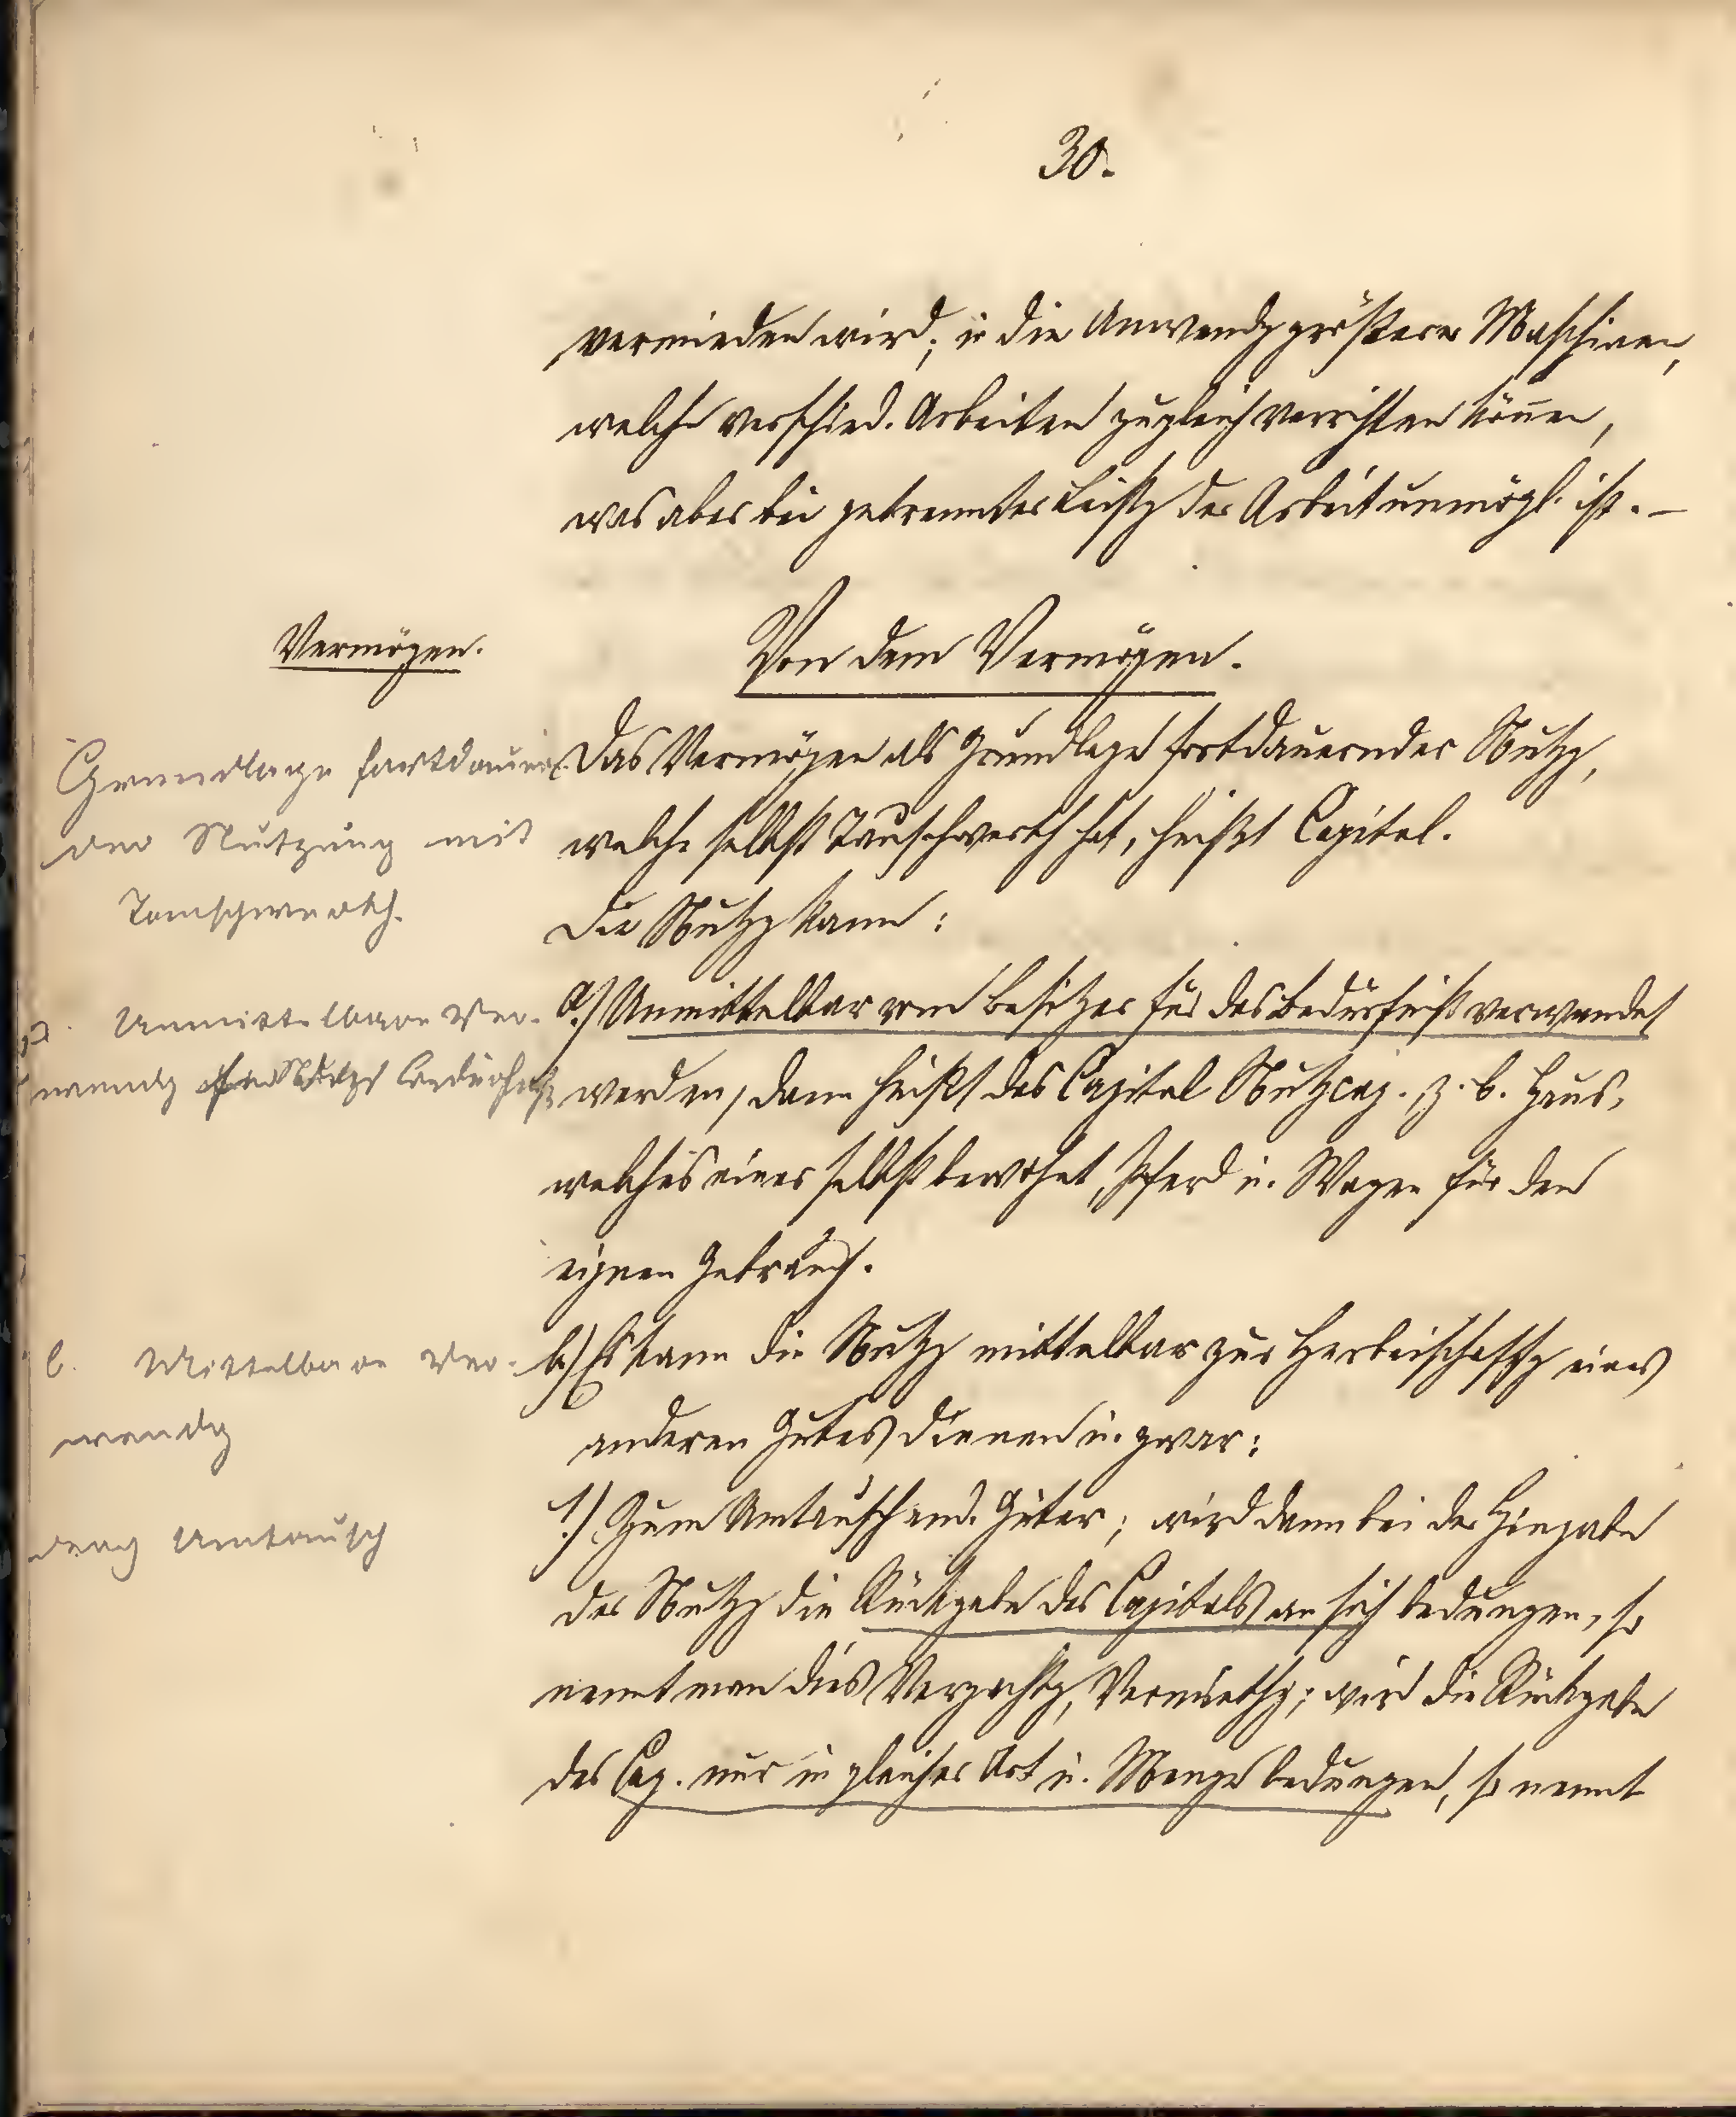 30.
vermieden wird; u. die Anwendg größerer Maschinen,
welche verschied. Arbeiten zugleich verrichten können,
was aber bei getrennter Leistg der Arbeit unmögl. ist. –
Vermögen.
Von dem Vermögen.
Grundlage fortdauern
der Nutzung mit
Tauschwerth.
Das Vermögen als Grundlage fortdauernder Nutzg,
welche selbst Tauschwerth hat, heißt Capital.
Die Nutzg kann:
a. Unmittelbare Ver-
wendg
a.) Unmittelbar vom Besitzer für das Bedürfniß verwendet
werden, dann heißt das Capital Nutzcap. z. b. Haus,
welches einer selbst bewohnt, Pferd u. Wagen für den
eignen Gebrauch.
b. Mittelbare Ver-
wendg
b.) Es kann die Nutzg mittelbar zur Herbeischaffg eines
anderen Gutes dienen u. zwar:
durch Umtausch
1.) Zum Umtausch and. Güter; wird dann bei der Hingabe
der Nutzg die Rückgabe des Capitals an sich bedungen, so
nennt man dies Verpachtg, Vermiethg; wird die Rückgabe
des Cap. nur in gleicher Art u. Menge bedungen, so nennt